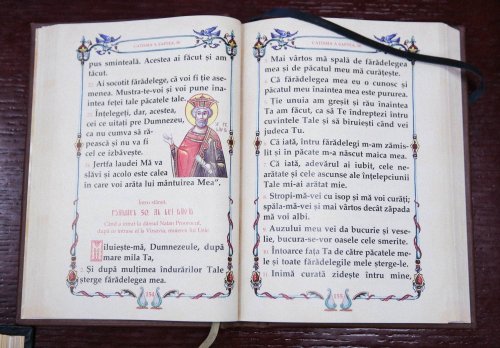 CATISMA A ŞAPTEA, 49
pus sminteală. Acestea ai făcut şi am
tăcut.
Ai socotit fărădelege, că voi fi ţie ase-
menea. Mustra-te-voi şi voi pune ina-
intea feţei tale păcatele tale.
Înţelegeţi, dar, acestea,
cei ce uitaţi pre Dumnezeu,
ca nu cumva să ră-
pească şi nu va fi
cel ce izbăveşte.
Jertfa laudei Mă va
slăvi şi acolo este calea
în care voi arăta lui mântuirea Mea”.
Întru sfârşit,
Psalmul 50 al lui David
Când a intrat la dânsul Natan Proorocul,
după ce intrase el la Virsavia, muierea lui Urie
Miluieşte-mă, Dumnezeule, după
mare mila Ta,
Şi după mulţimea îndurărilor Tale
şterge fărădelegea mea.
154
CATISMA A ŞAPTEA, 50
Mai vârtos mă spală de fărădelegea
mea şi de păcatul meu mă curăţeşte.
Că fărădelegea mea eu o cunosc şi
păcatul meu înaintea mea este pururea.
Ţie unuia am greşit şi rău înaintea
Ta am făcut, ca să Te îndreptezi întru
cuvintele Tale şi să biruieşti când vei
judeca Tu.
Că iată, întru fărădelegi m-am zămis-
lit şi în păcate m-a născut maica mea.
Că iată, adevărul ai iubit, cele ne-
arătate şi cele ascunse ale înţelepciunii
Tale mi-ai arătat mie.
Stropi-mă-vei cu isop şi mă voi curăţi;
spăla-mă-vei şi mai vârtos decât zăpada
mă voi albi.
Auzului meu vei da bucurie şi vese-
lie, bucura-se-vor oasele cele smerite.
Întoarce faţa Ta de către păcatele me-
le şi toate fărădelegile mele şterge-le.
Inimă curată zideşte întru mine,
155